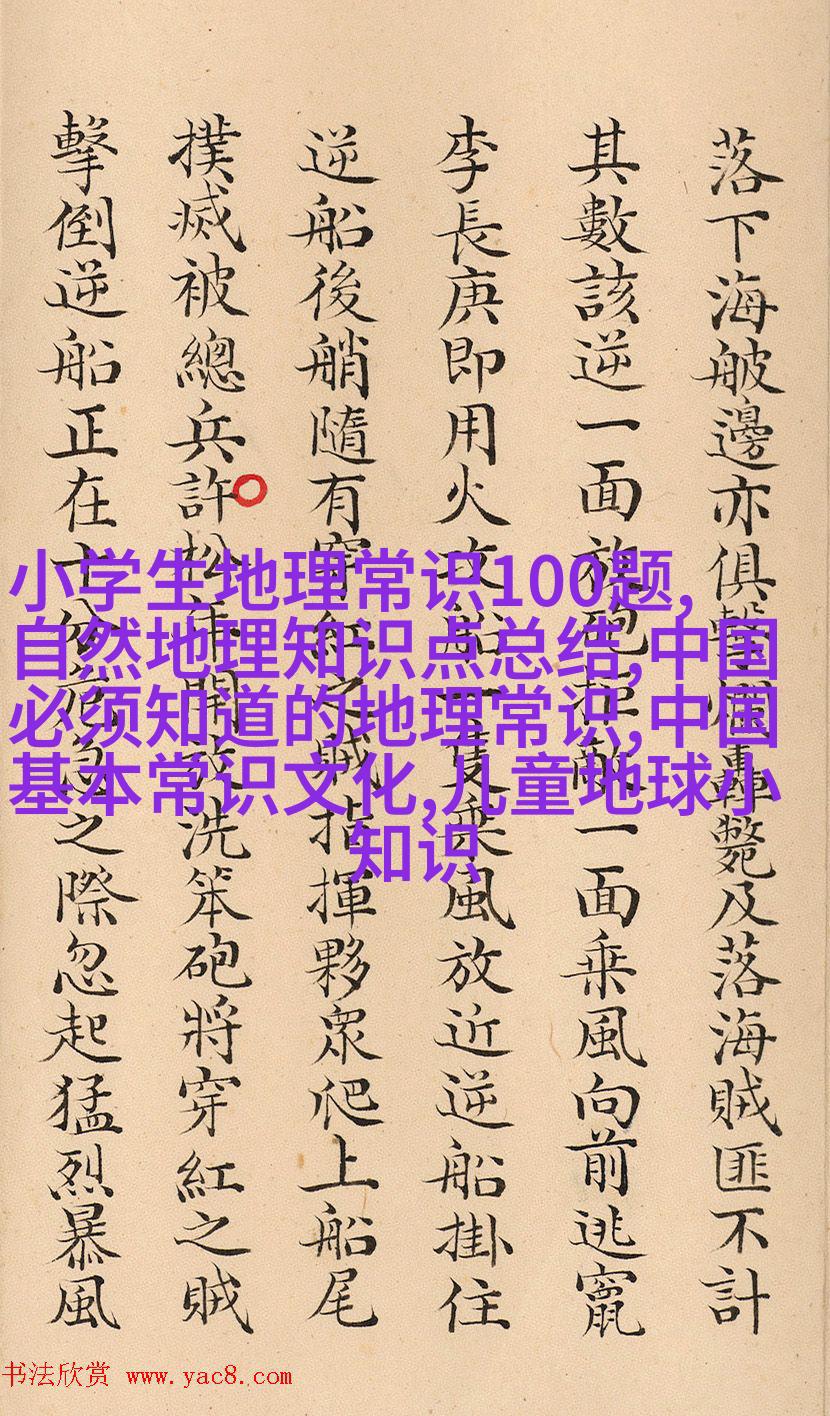 落下海邊亦俱擊爛轟斃及落海賊匪不計
其數該逆一面放砲拒敵一面乘風向前逃竄
李長庚即用火攻船一隻乘風放近逆船掛住
逆船後艄隨有穿紅之賊指揮夥衆爬上船尾
撲滅被總兵許松年開放洗笨砲將穿紅之賊
擊倒逆船正在十分危急之際忽起猛烈暴風
小学生地理常识100题,
自然地理知识点总结,中国
必须知道的地理常识,中国
基本常识文化,儿童地球小
知识
书法欣赏 www.yac8.com